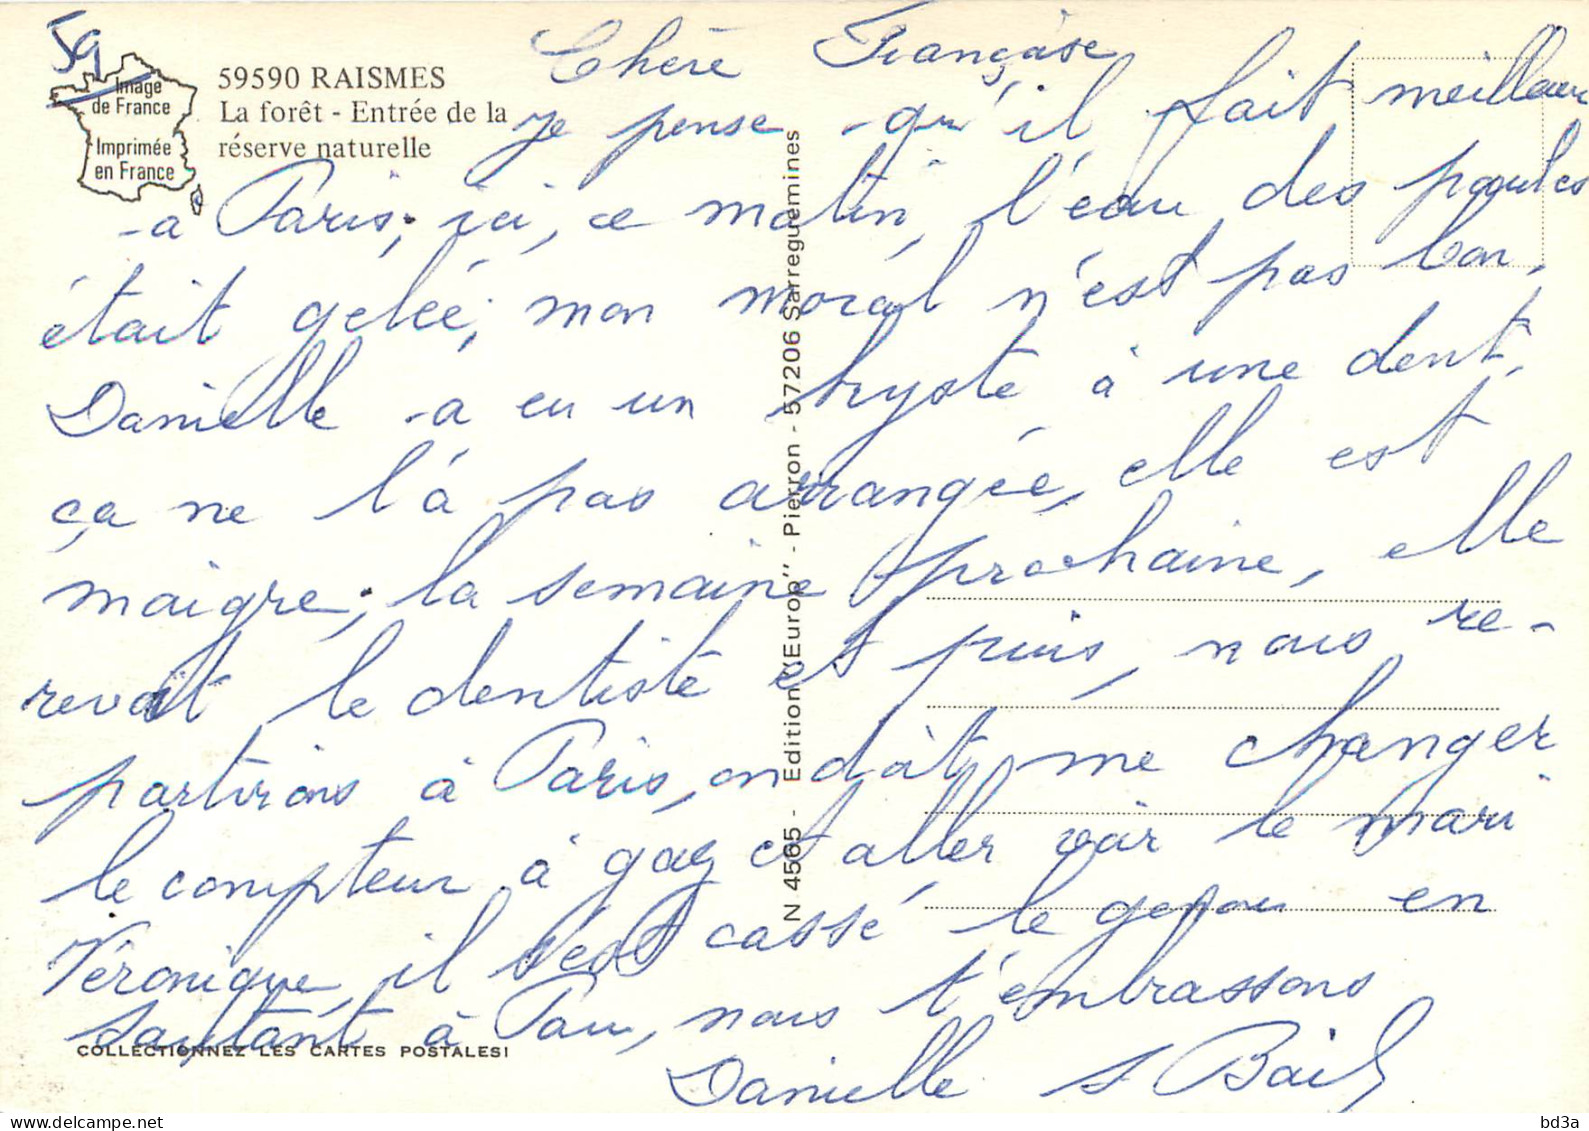 59
Image
de France
Imprimée
en France
59590 RAISMES
La forêt - Entrée de la
réserve naturelle
Chère Françoise
je pense qu'il fait meilleur
à Paris; ici, ce matin, l'eau des poules
était gelée; mon moral n'est pas bon,
Danielle a eu un kyste à une dent,
ça ne l'á pas arrangée, elle est
maigre; la semaine prochaine, elle
revoit le dentiste et puis, nous re-
partirons à Paris, on doit me changer
le compteur à gaz et aller voir le mari
Véronique, il s'est cassé le genou en
sautant à Pau, nous t'embrassons
Danielle
N 4565 - Edition "Europ" - Pierron - 57206 Sarreguemines
COLLECTIONNEZ LES CARTES POSTALES!
www.delcampe.net
bd3a